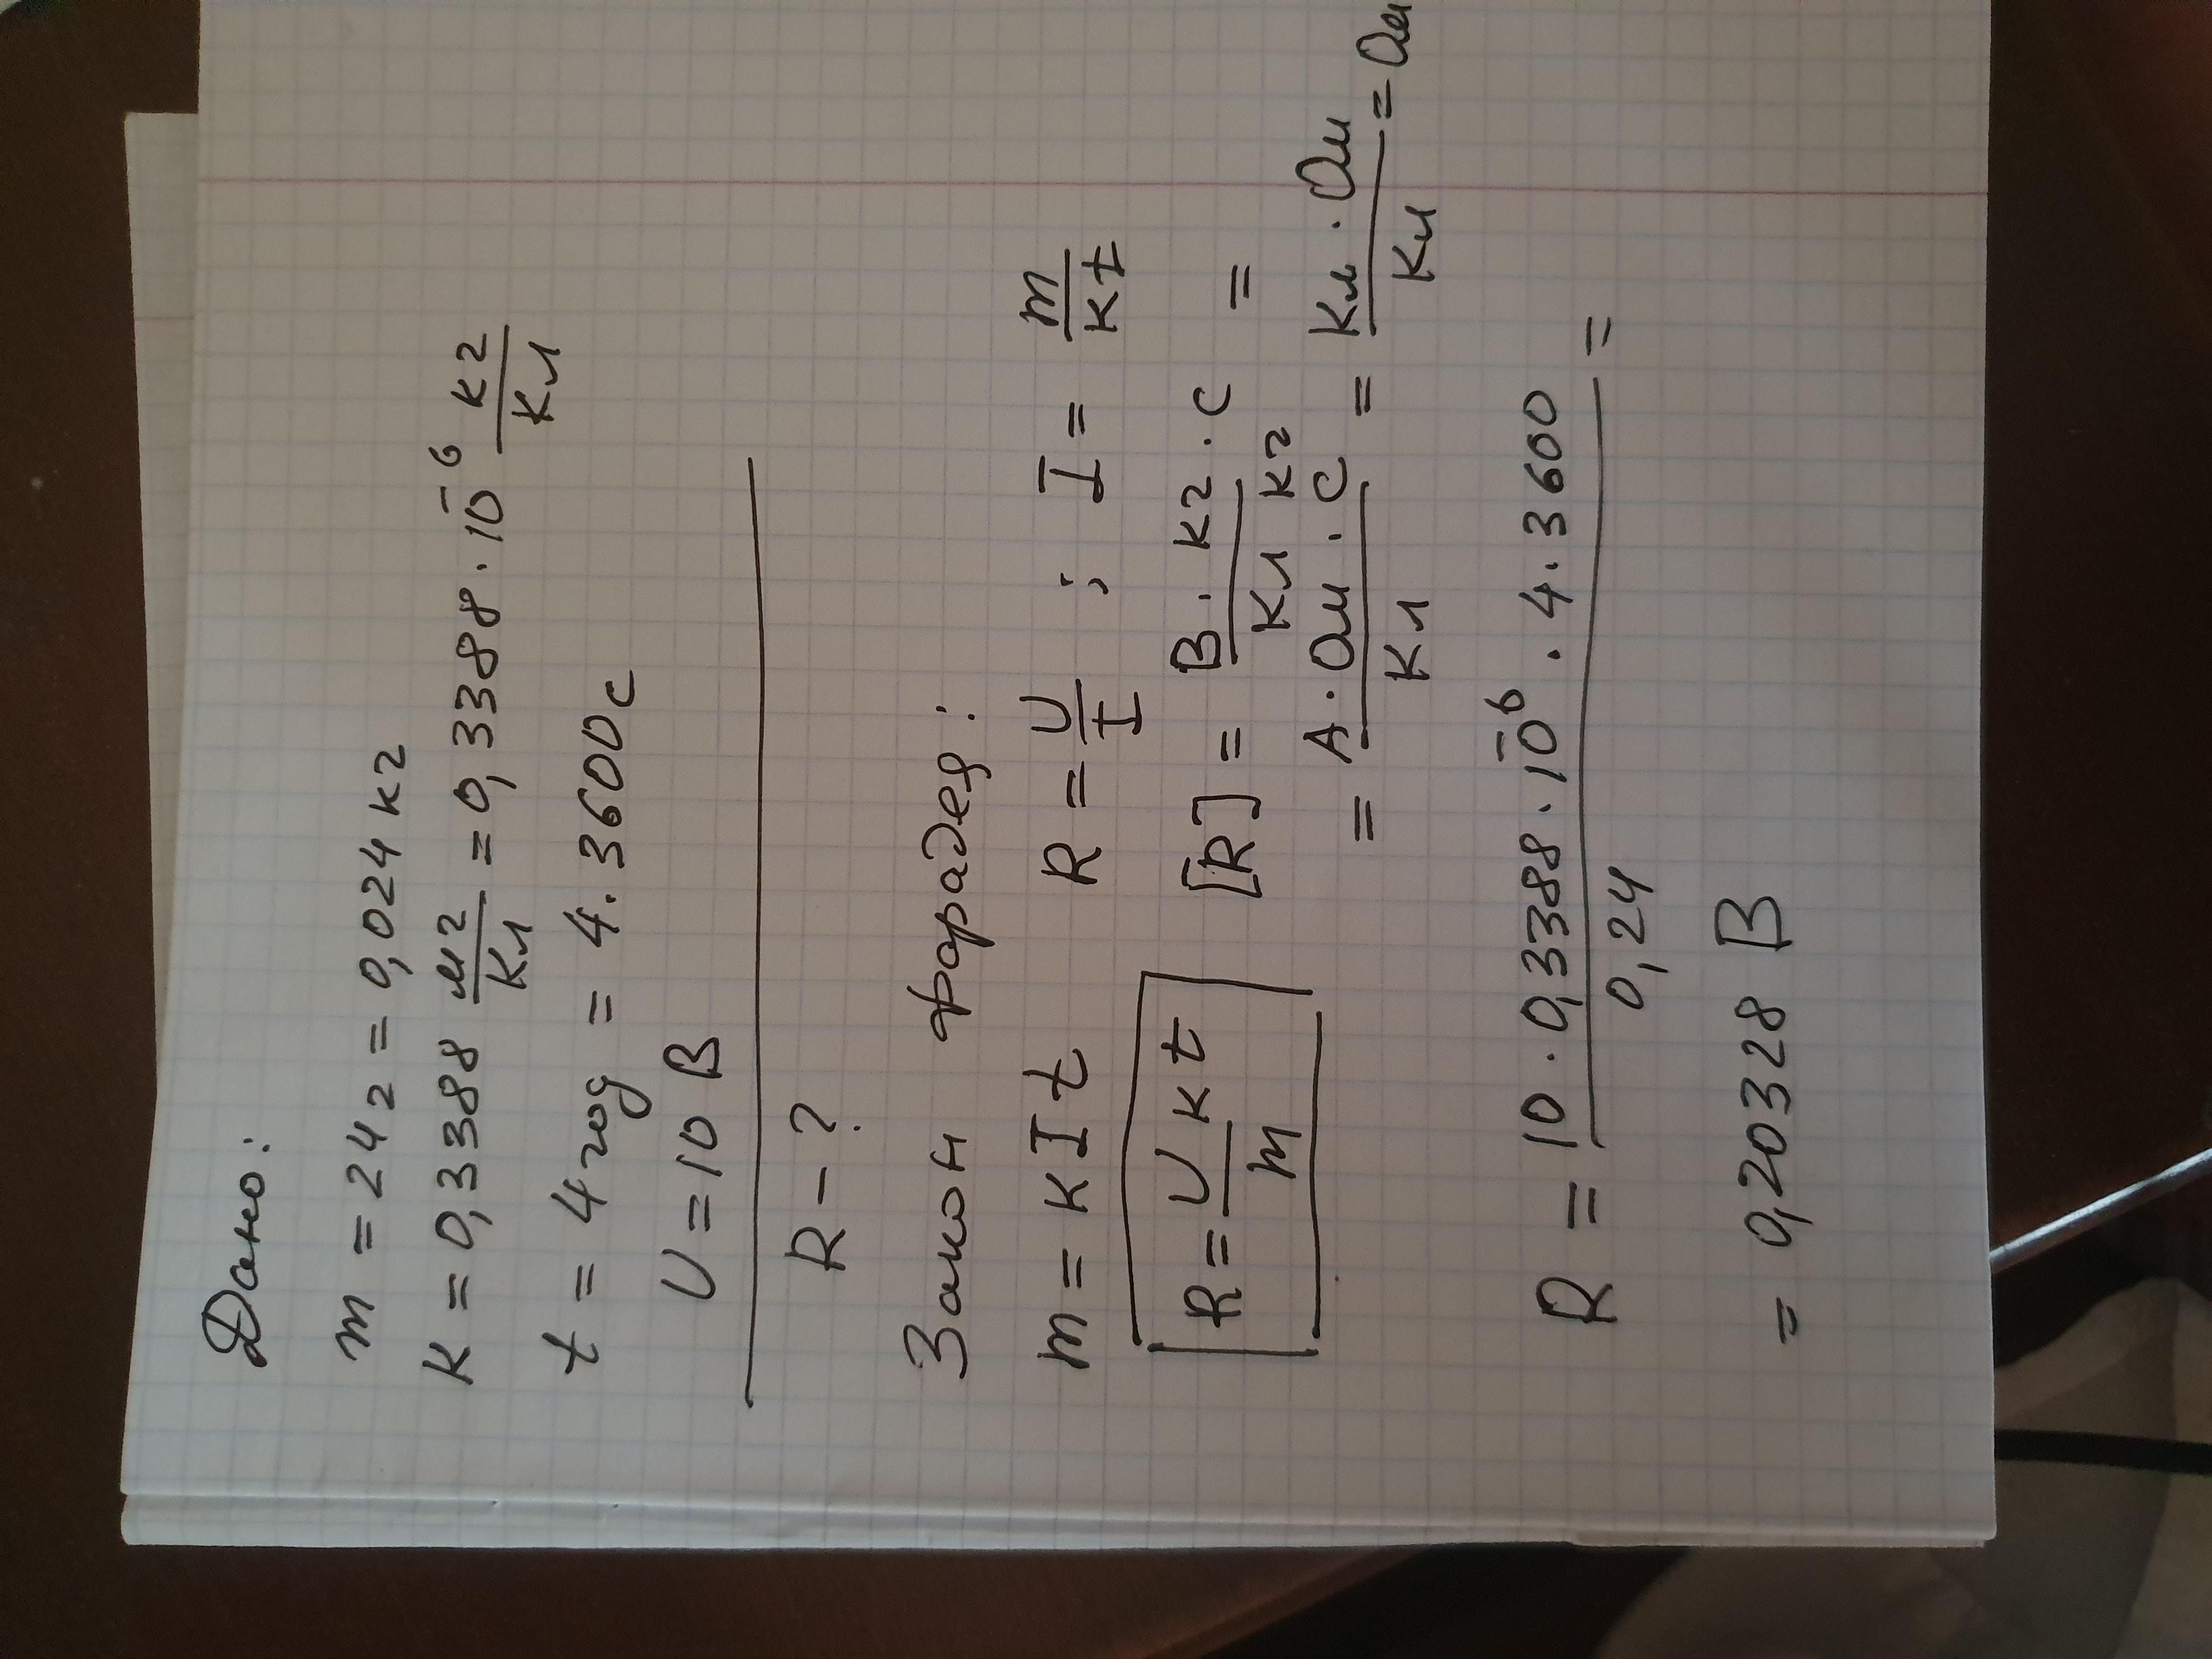 Дано:
m = 24 г = 0,024 кг
K = 0,3388 мг/Кл = 0,3388 · 10⁻⁶ кг/Кл
t = 4 год = 4 · 3600 с
U = 10 В
R - ?
Закон фарадея:
m = K I t R = U/I ; I = m/Kt
R = UKt/m [R] = В · кг · с/Кл кг =
= А · Ом · с/Кл = Кл · Ом/Кл = Ом
R = 10 · 0,3388 · 10⁻⁶ · 4 · 3600/0,24 =
= 0,20328 В